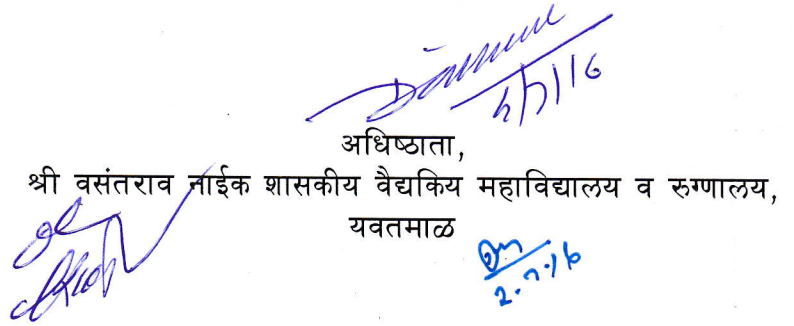 अधिष्ठाता,
श्री वसंतराव नाईक शासकीय वैद्यकिय महाविद्यालय व रुग्णालय,
यवतमाळ
2.7.16